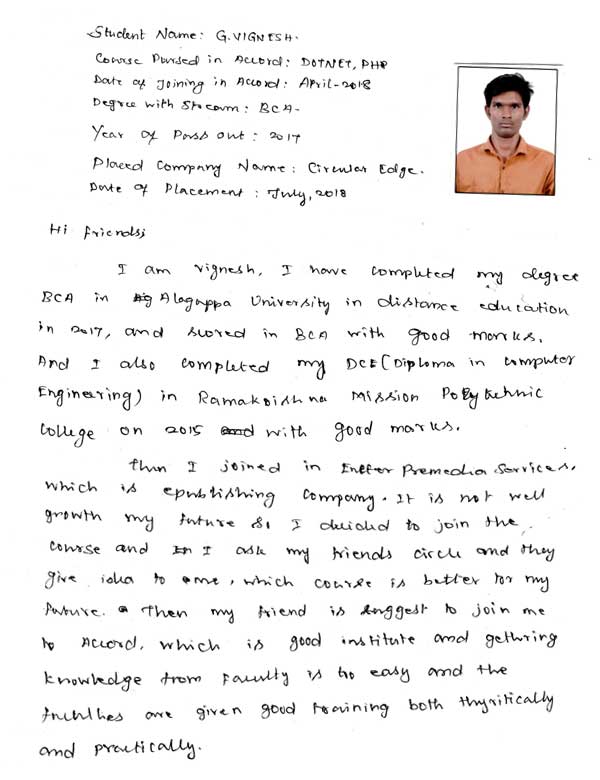 Student Name: G.VIGNESH.
Course Pursed in Accord: DOTNET, PHP
Date of Joining in Accord: April-2018
Degree with Stream: BCA-
Year of Pass out: 2017
Placed Company Name: Circular Edge.
Date of Placement: July, 2018
Hi friends,
I am vignesh, I have completed my degree
BCA in Alagappa University in distance education
in 2017, and scored in BCA with good marks.
And I also completed my DCE(Diploma in computer
Engineering) in Ramakrishna Mission Polytechnic
College on 2015 with good marks.
then I joined in Premedia Services,
which is epublishing company. It is not well
growth my future so I decided to join the
course and I ask my friends circle and they
give idea to me, which course is better for my
future. Then my friend is suggest to join me
to Accord, which is good institute and gethring
knowledge from Faculty is too easy and the
are given good training both thyritically
and practically.